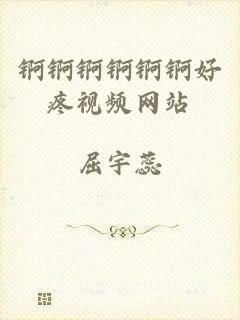 锕锕锕锕锕锕好
疼视频网站
屈宇蕊